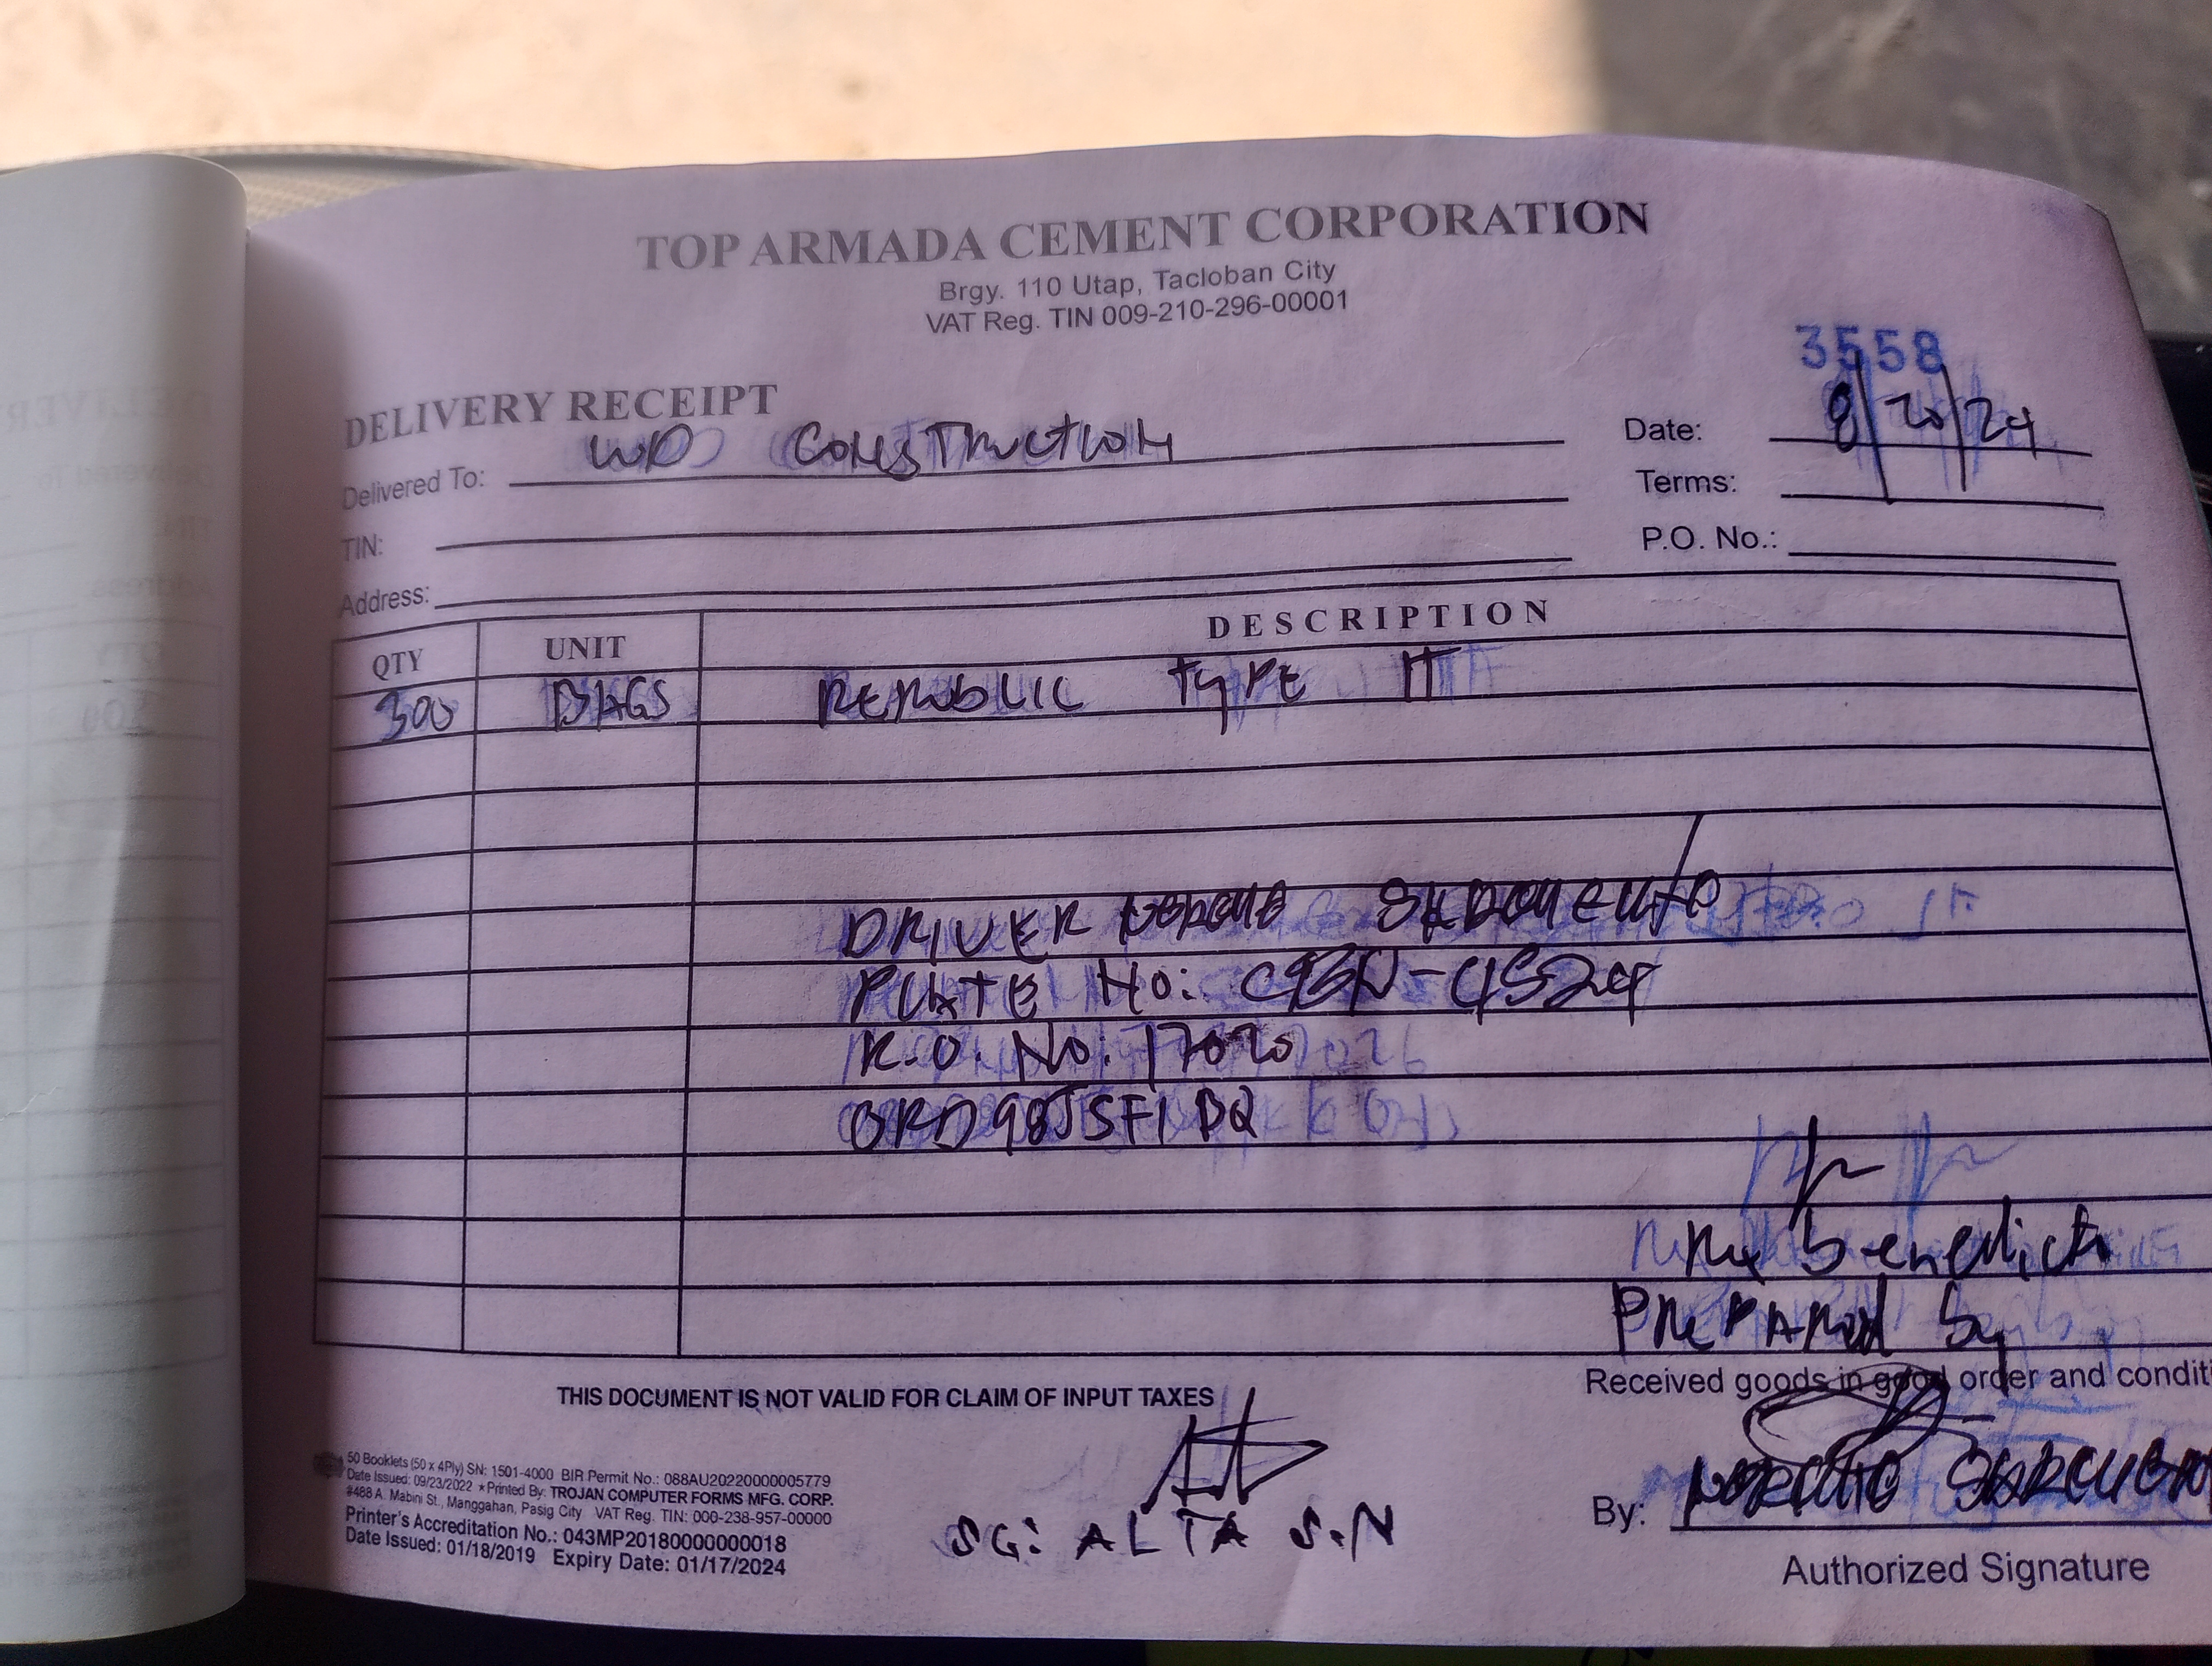 TOP ARMADA CEMENT CORPORATION
Brgy. 110 Utap, Tacloban City
VAT Reg. TIN 009-210-296-00001
3558
DELIVERY RECEIPT
Date: 8/20/24
Delivered To: WD CONSTRUCTION
Terms:
TIN:
P.O. No.:
Address:
QTY UNIT DESCRIPTION
300 BAGS REPUBLIC TYPE IT
DRIVER
PLATE No:
R.O. No: 17020
Benedict
PREPARED by
Received goods in good order and condit
THIS DOCUMENT IS NOT VALID FOR CLAIM OF INPUT TAXES
50 Booklets (50 x 4Ply) SN: 1501-4000 BIR Permit No.: 088AU20220000005779
Date Issued: 09/23/2022 * Printed By: TROJAN COMPUTER FORMS MFG. CORP.
#488 A. Mabini St., Manggahan, Pasig City VAT Reg. TIN: 000-238-957-00000
Printer's Accreditation No.: 043MP20180000000018
Date Issued: 01/18/2019 Expiry Date: 01/17/2024
SG: ALTA S.N
By:
Authorized Signature